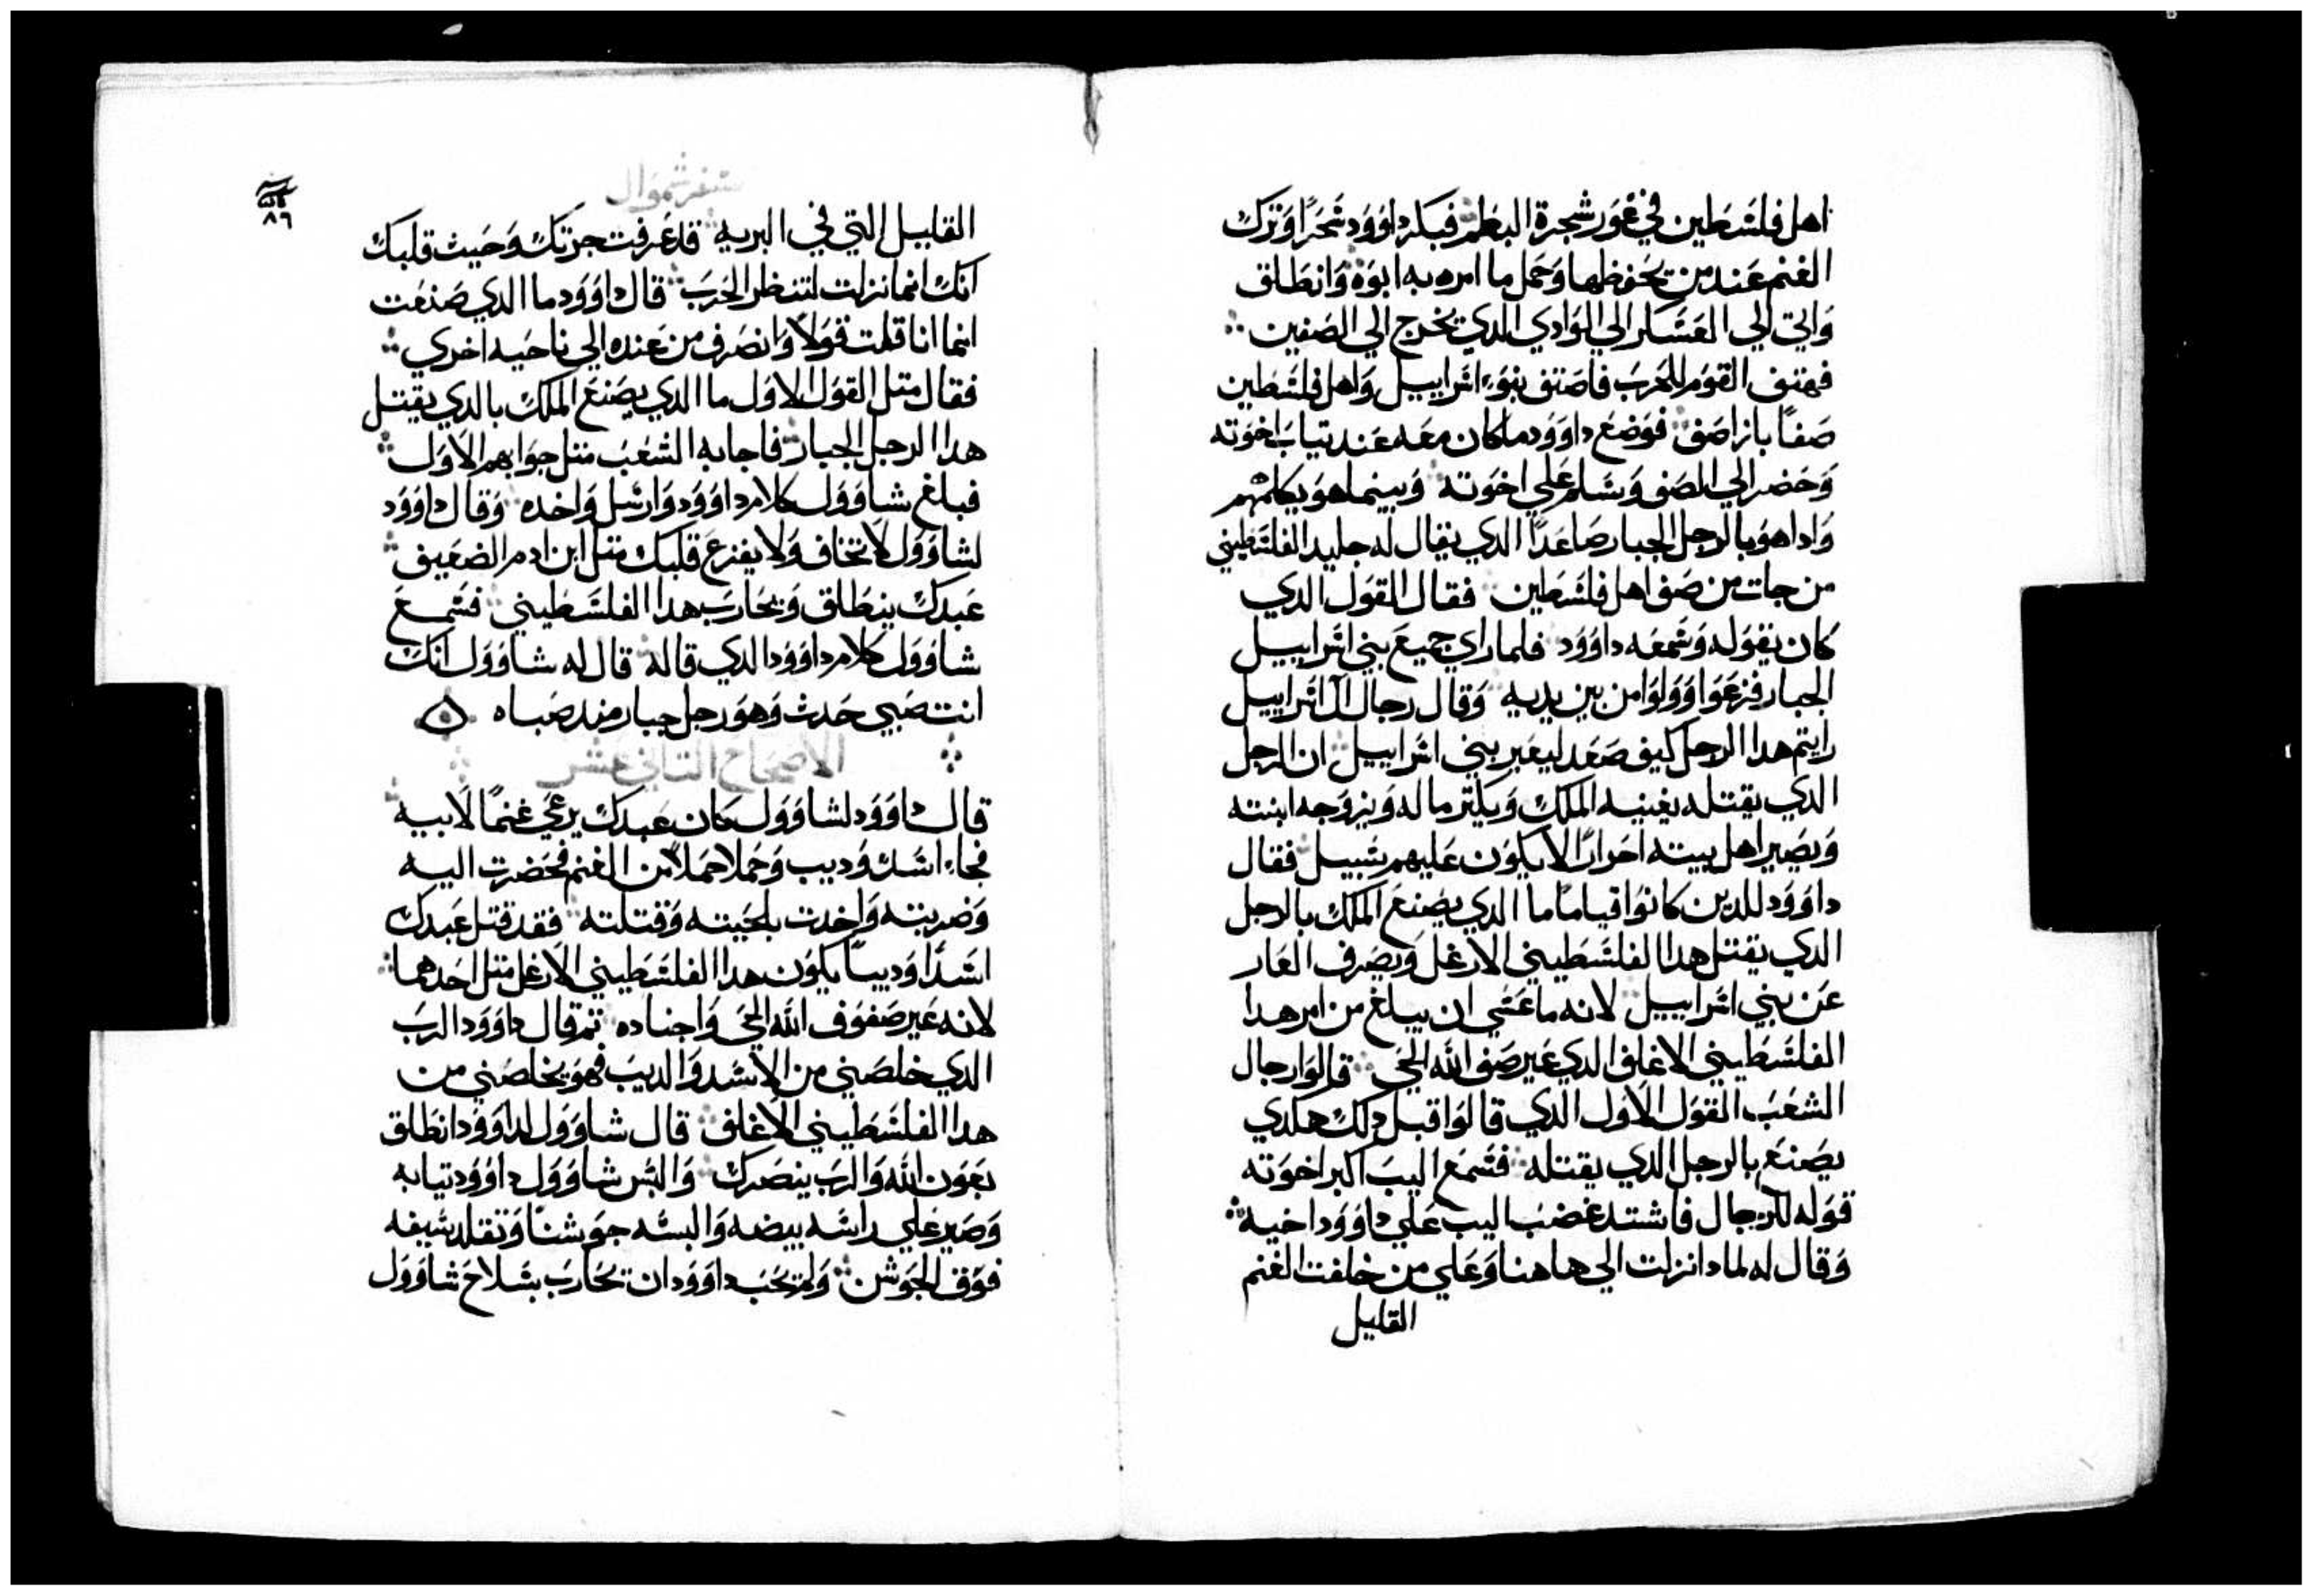 اهل فلسطين في غور شجرة البطم فبكر داوود سحرًا وترك
الغنم عند من يحفظها وحمل ما امره به ابوه وانطلق
واتي الي العسكر الي الوادي الدي يخرج الي الصفين
فهتف القوم للحرب فاصتف بنو اسراييل واهل فلسطين
صفًا بازا صف فوضع داوود ما كان معه عند تياب اخوته
وحضر الي الصف وسلم علي اخوته وبينما هو يكلمهم
وادا هو بالرجل الجبار صاعدًا الدي يقال له جليد الفلسطيني
من جات من صف اهل فلسطين فقال القول الدي
كان يقوله وسمعه داوود فلما راي جميع بني اسراييل
الجبار فزعوا وولوا من بين يديه وقال رجال ال اسراييل
رايتم هدا الرجل كيف صعد ليعير بني اسراييل ان الرجل
الدي يقتله يغنيه الملك ويكتر ماله ويزوجه ابنته
ويصير اهل بيته احرارًا لا يكون عليهم سبيل فقال
داوود للدين كانوا قيامًا ما الدي يصنع الملك بالرجل
الدي يقتل هدا الفلسطيني الارغل ويصرف العار
عن بني اسراييل لانه ما عسي ان يبلغ من امر هدا
الفلسطيني الاغلف الدي عير صف الله الحي قالوا رجال
الشعب القول الاول الدي قالوا قبل دلك هكدي
يصنع بالرجل الدي يقتله فسمع اليب اكبر اخوته
قوله للرجال فاشتد غضب اليب علي داوود اخيه
وقال له لمادا نزلت الي هاهنا وعلي من خلفت الغنم
القليل
سفر شموال
٨٦
القليل التي في البريه قد عرفت جرتك وخبث قلبك
انك انما نزلت لتنظر الحرب قال داوود ما الدي صنعت
انما انا قلت قولًا وانصرف من عنده الي ناحيه اخري
فقال متل القول الاول ما الدي يصنع الملك بالدي يقتل
هدا الرجل الجبار فاجابه الشعب متل جوابهم الاول
فبلغ شاوول كلام داوود وارسل واخده وقال داوود
لشاوول لا تخاف ولا يفزع قلبك متل ابن ادم الضعيف
عبدك ينطلق ويحارب هدا الفلسطيني فسمع
شاوول كلام داوود الدي قاله قال له شاوول انك
انت صبي حدث وهو رجل جبار مند صباه
الاصحاح التاني عشر
قال داوود لشاوول كان عبدك يرعي غنمًا لابيه
فجاء اسد وديب وحملا حملًا من الغنم فحضرت اليه
وضربته واخدت بلحيته وقتلته فقد قتل عبدك
اسدًا وديبًا يكون هدا الفلسطيني الارغل متل احدهما
لانه عير صفوف الله الحي واجناده تم قال داوود الرب
الدي خلصني من الاسد والديب فهو يخلصني من
هدا الفلسطيني الاغلف قال شاوول لداوود انطلق
بعون الله والرب ينصرك والبس شاوول داوود تيابه
وصير علي راسه بيضه والبسه جوشنًا وتقلد سيفه
فوق الجوشن ولم يحب داوود ان يحارب بسلاح شاوول